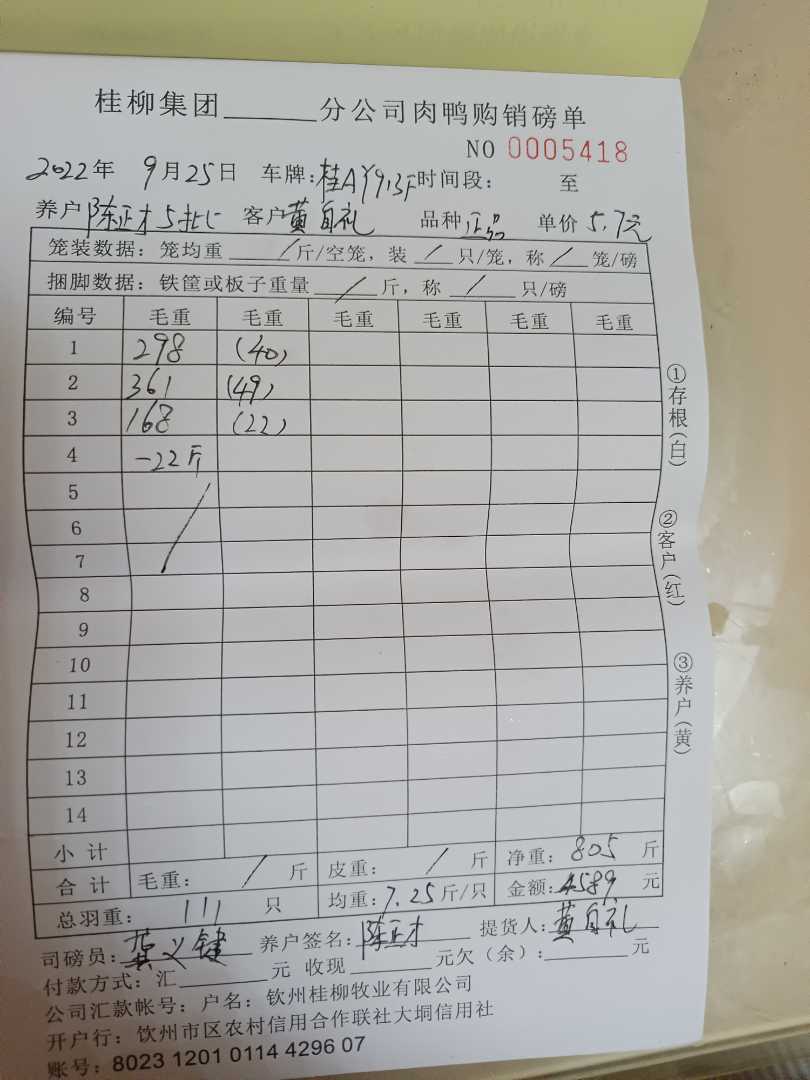 桂柳集团______分公司肉鸭购销磅单
NO 0005418
2022年 9月25日 车牌:桂AY913F 时间段: 至
养户 陈正才5批 客户 黄自礼 品种 正品 单价 5.7元
笼装数据: 笼均重 / 斤/空笼, 装 / 只/笼, 称 / 笼/磅
捆脚数据: 铁筐或板子重量 / 斤, 称 / 只/磅
编号 毛重 毛重 毛重 毛重 毛重 毛重
1 298 (40)
2 361 (49)
3 168 (22)
4 -22斤
5
6
7
8
9
10
11
12
13
14
小计
合计 毛重: / 斤 皮重: / 斤 净重: 805 斤
总羽重: 111 只 均重: 7.25 斤/只 金额: 4589 元
司磅员: 龚义键 养户签名: 陈正才 提货人: 黄自礼
付款方式: 汇______元 收现______元欠(余):______元
公司汇款帐号: 户名: 钦州桂柳牧业有限公司
开户行: 钦州市区农村信用合作联社大垌信用社
账号: 8023 1201 0114 4296 07
①存根(白)
②客户(红)
③养户(黄)